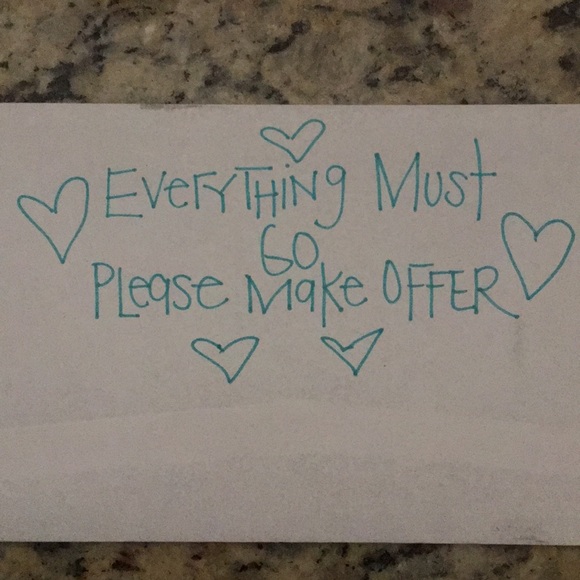 EVerYTHING Must
GO
PLease Make OFFER